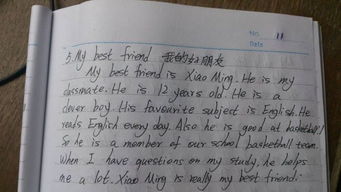 No. 11
Date
5. My best friend 我的好朋友
My best friend is Xiao Ming. He is my
classmate. He is 12 years old. He is a
clever boy. His favourite subject is English. He
reads English every day. Also he is good at basketball!
So he is a member of our school basketball team.
When I have questions on my study, he helps
me a lot. Xiao Ming is really my best friend.